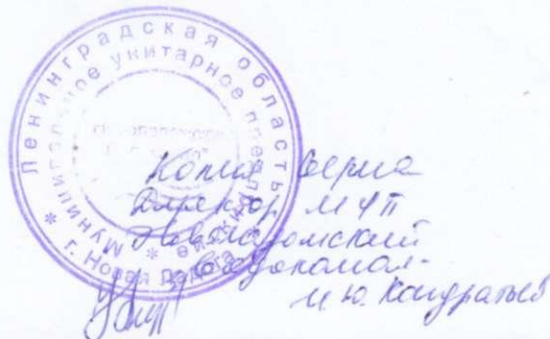 Ленинградская область
Муниципальное унитарное предприятие
г. Новая Ладога
Копия верна
Директор МУП
Новоладожский
Водоканал
И.Ю. Кондратьев